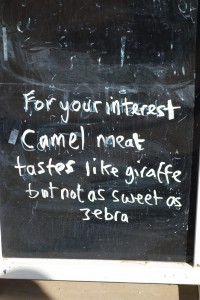 For your interest
Camel meat
tastes like giraffe
but not as sweet as
zebra